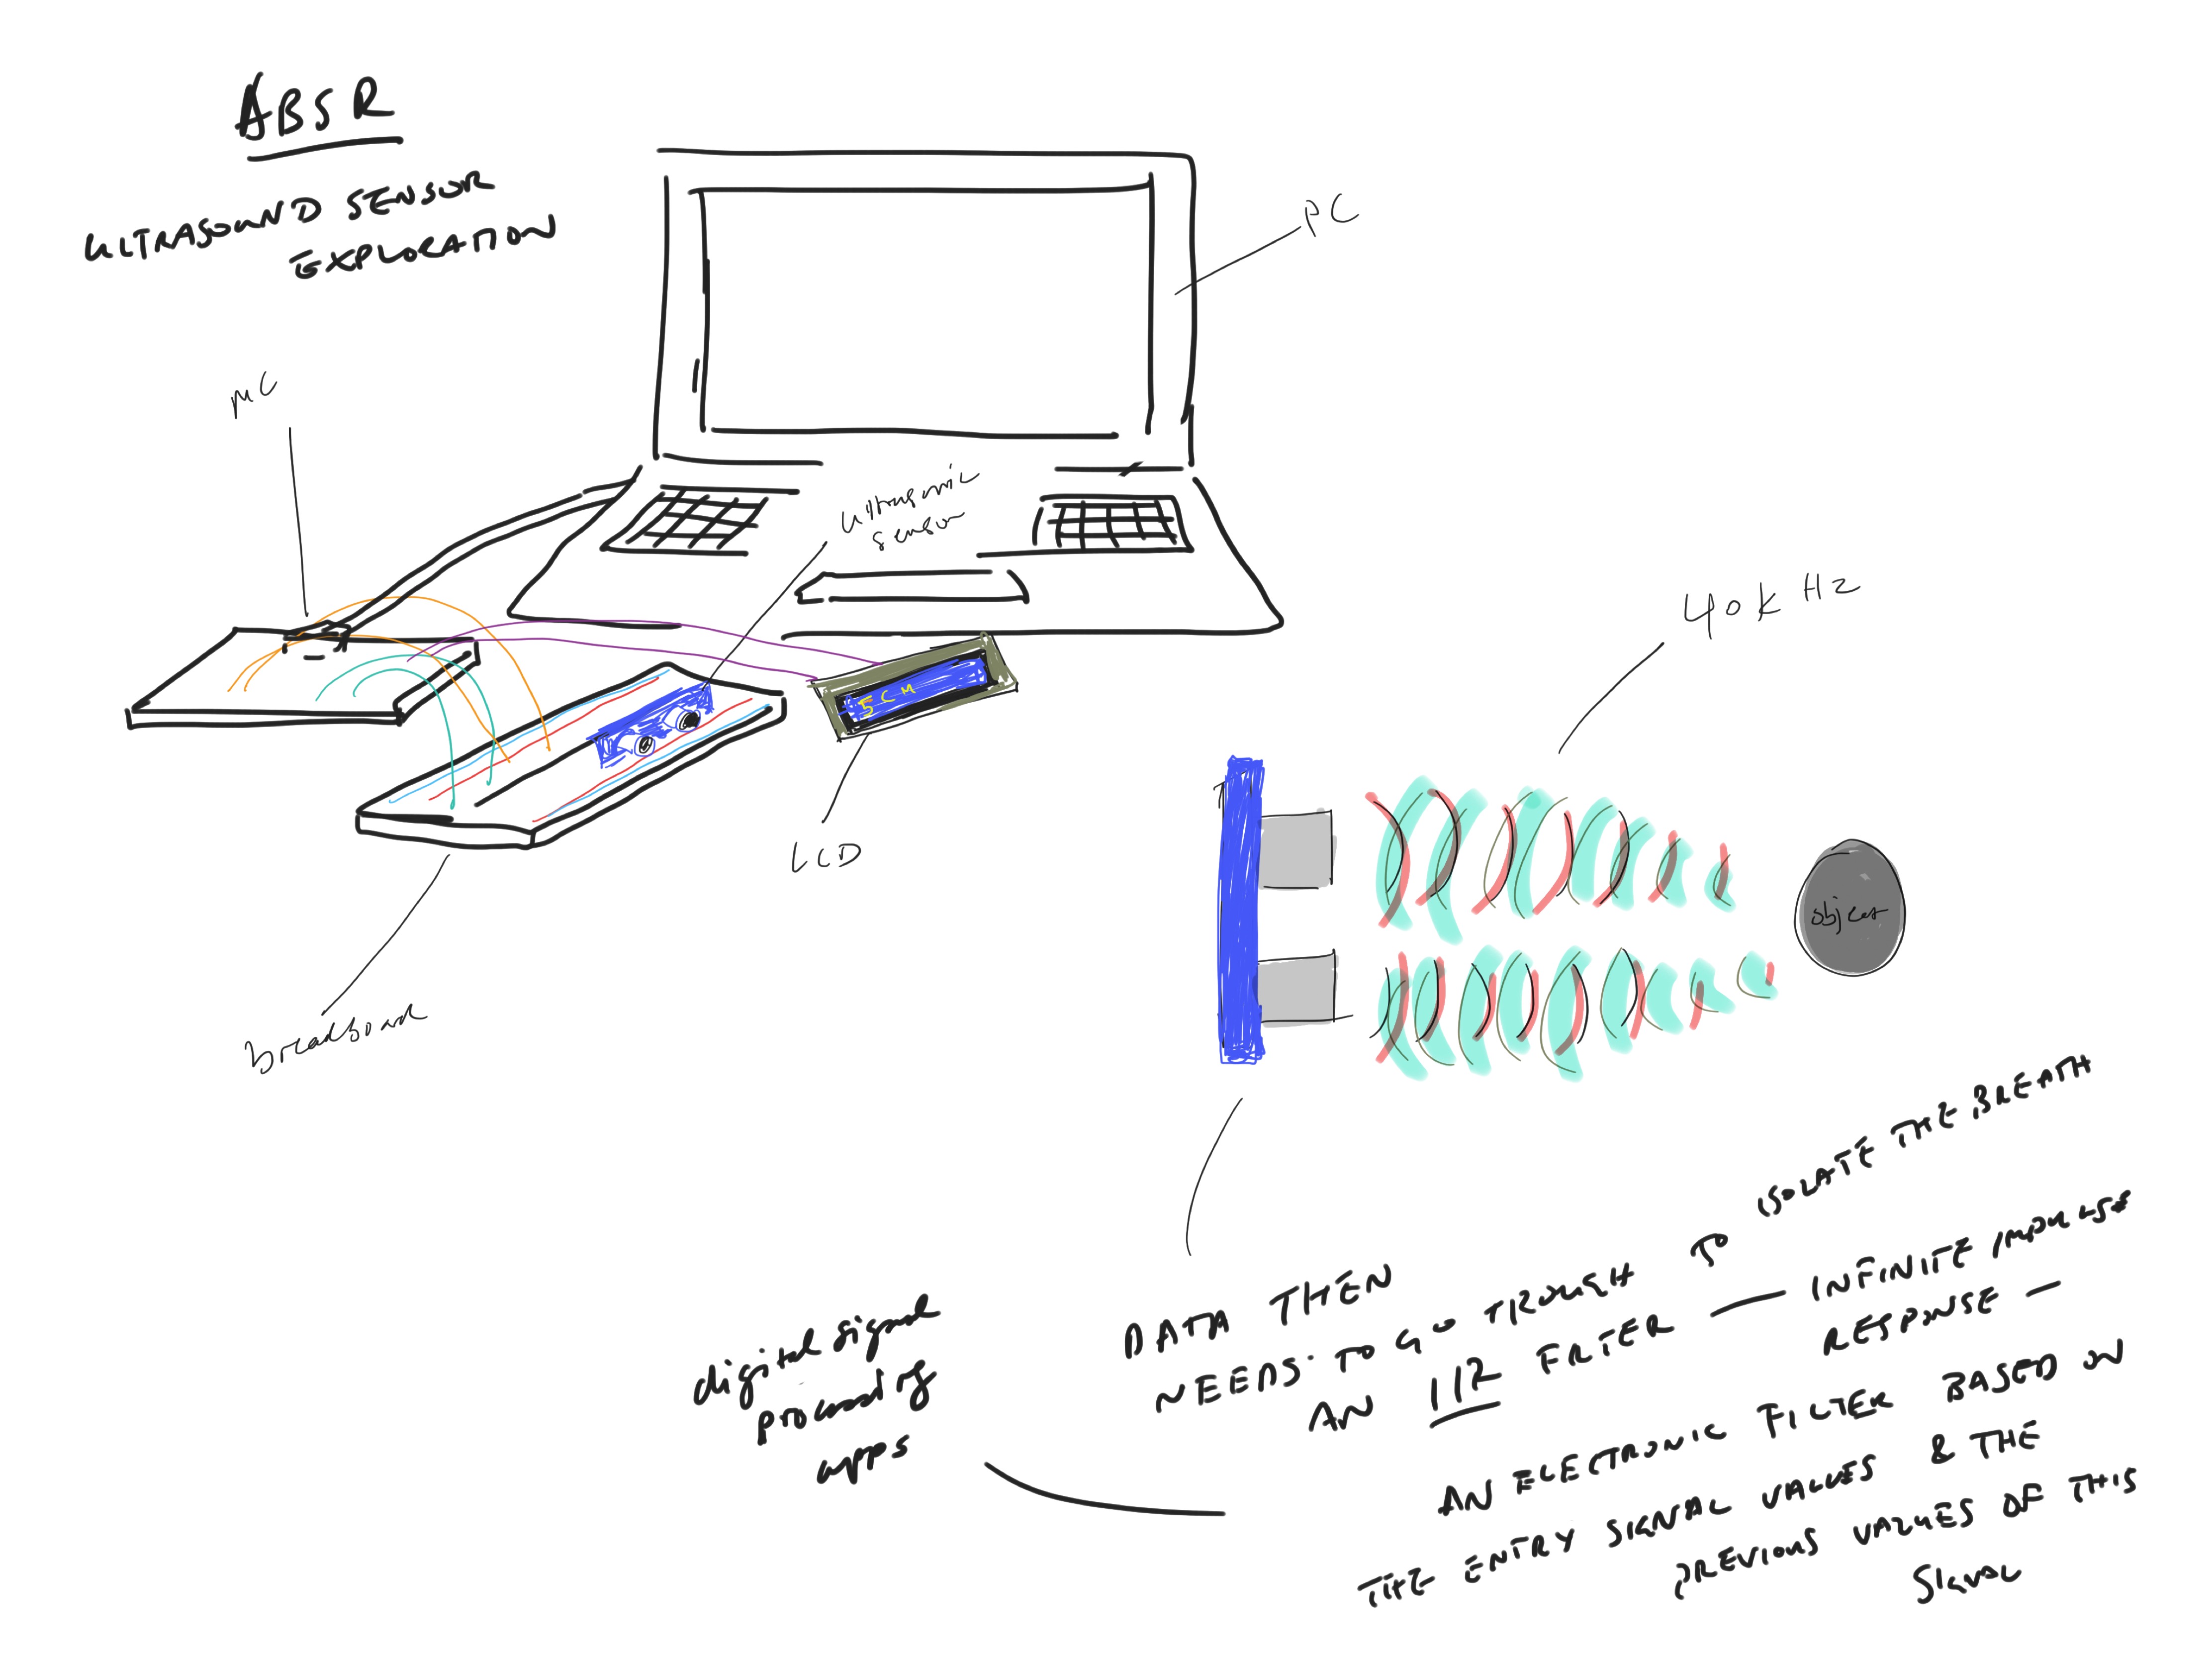 ABSR
ULTRASOUND SENSOR
EXPLORATION
PC
µC
ultrasonic
sensor
5CM
LCD
breadboard
40kHz
object
DATA THEN
NEEDS TO GO TROUGH TO ISOLATE THE BREATH
AN IIR FILTER — INFINITE IMPULSE
RESPONSE —
AN ELECTRONIC FILTER BASED ON
THE ENTRY SIGNAL VALUES & THE
PREVIOUS VALUES OF THIS
SIGNAL
digital signal
processing
apps